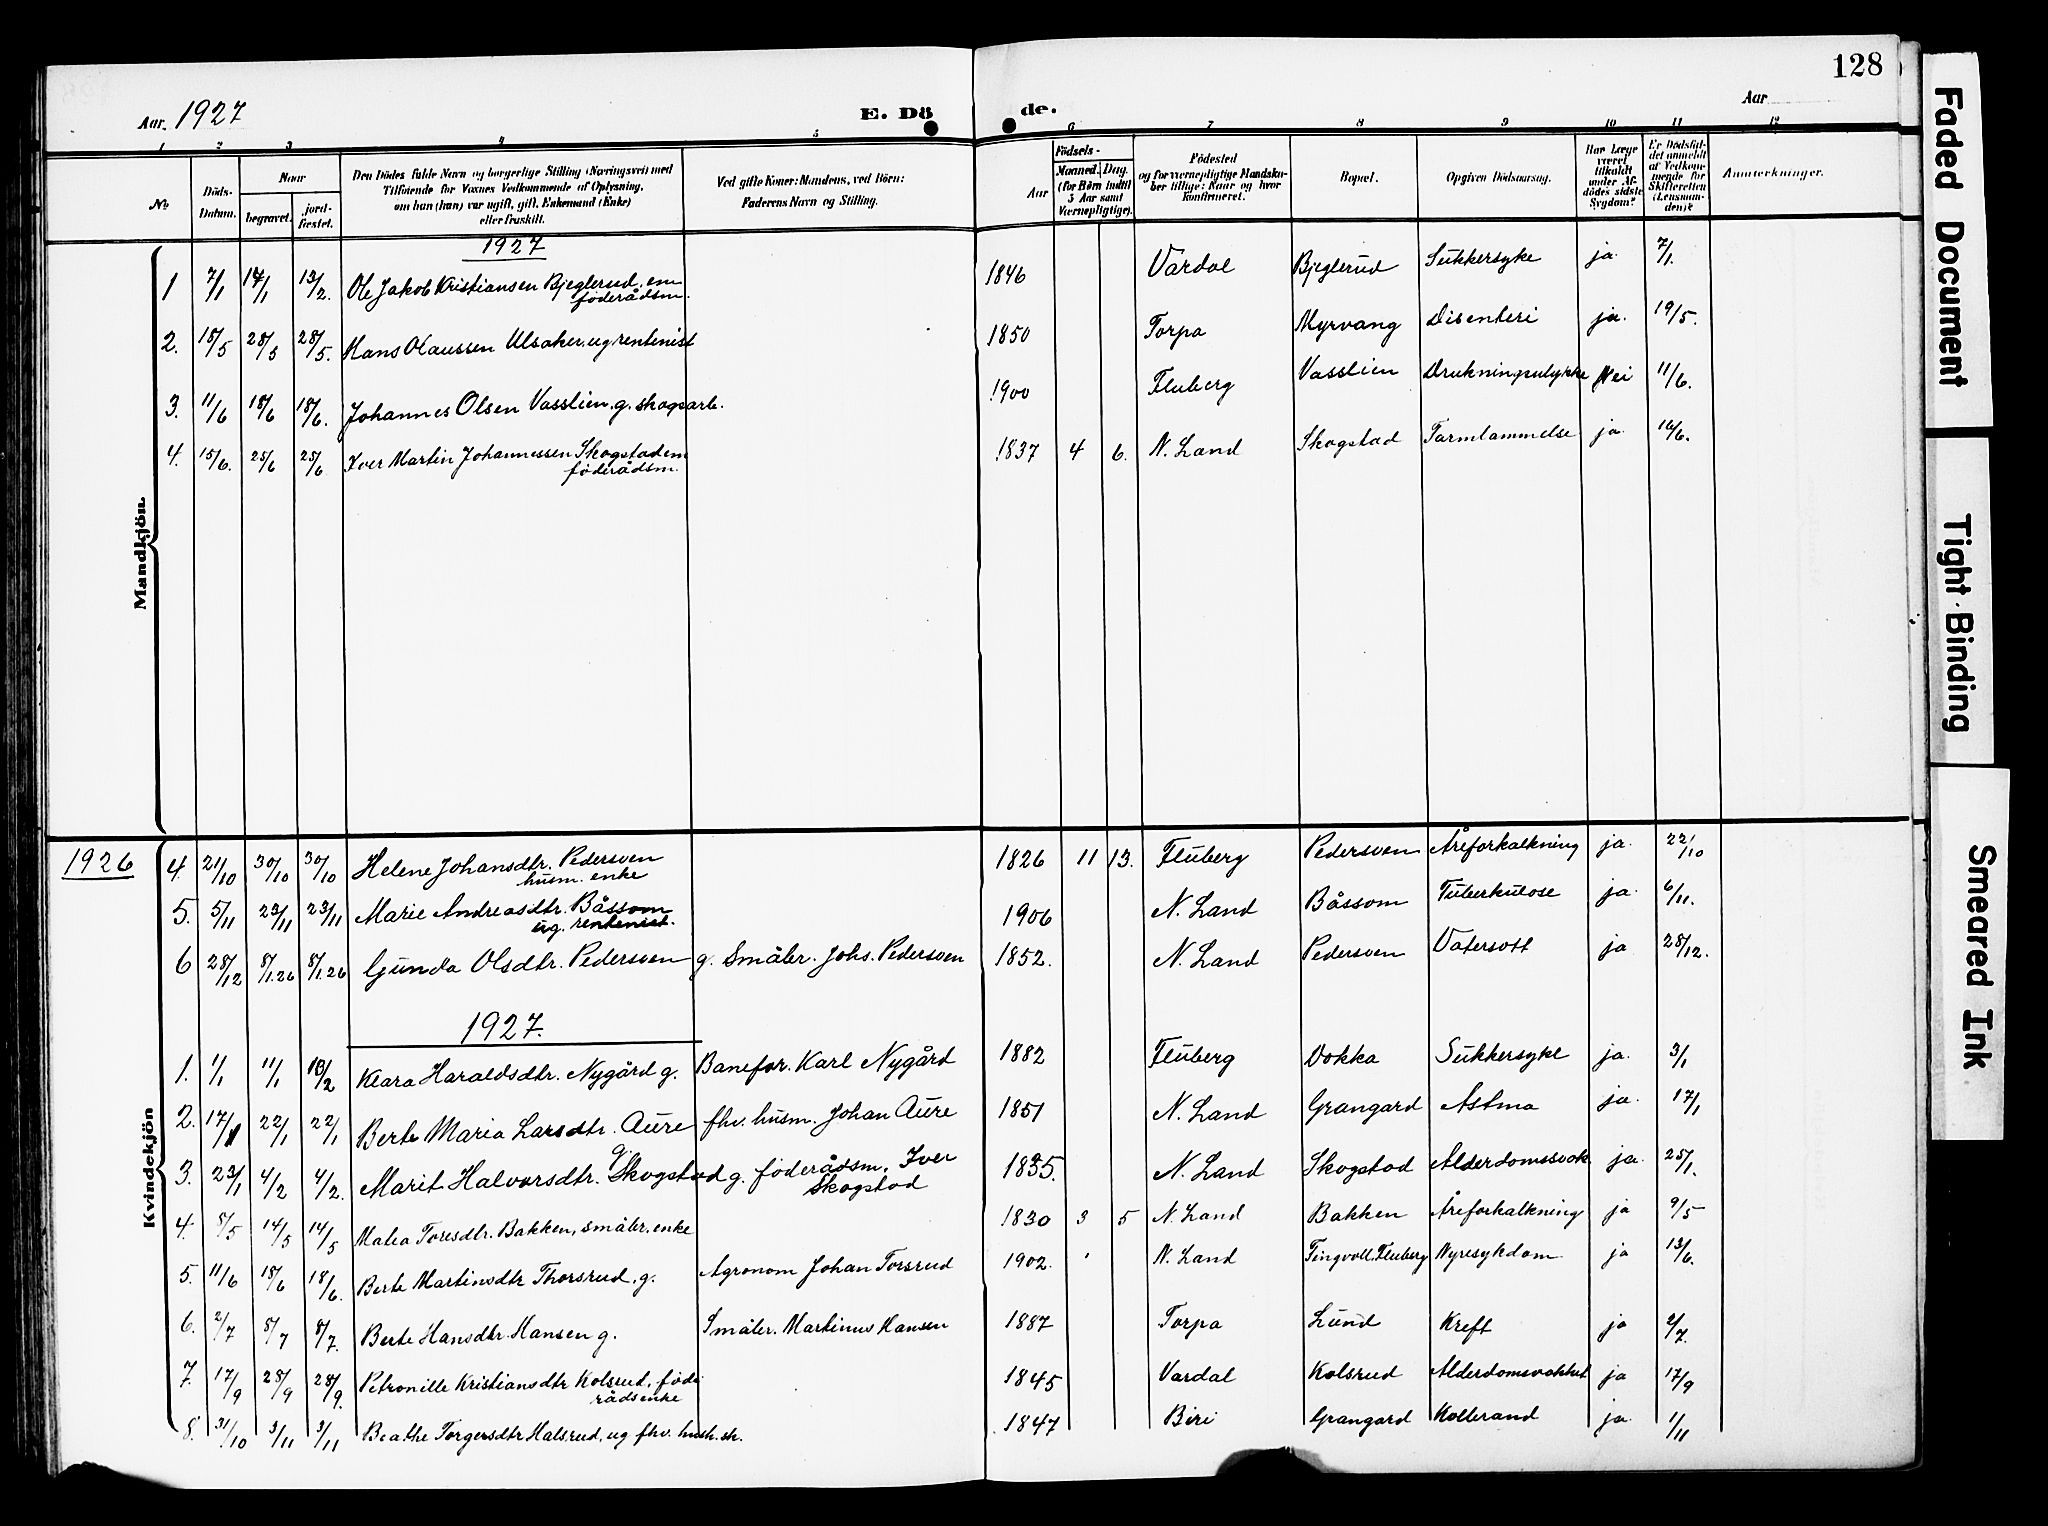 128
Aar 1927 E. Dö de. Aar
1 2 3 4 5 6 7 8 9 10 11 12
№
Döds-Datum.
Naar
begravet.
jord-fæstet.
Den Dödes fulde Navn og borgerlige Stilling (Næringsvei) med
Tilföiende for Voxnes Vedkommende af Oplysning,
om han (hun) var ugift, gift, Enkemand (Enke)
eller fraskilt.
Ved gifte Koner: Mandens, ved Börn:
Faderens Navn og Stilling.
Födsels-
Aar
Maaned. Dag.
(for Börn indtil
5 Aar samt
Værnepligtige).
Födested
og for værnepligtige Mandska-
ber tillige: Naar og hvor
konfirmeret.
Bopæl.
Opgiven Dödsaarsag.
Har Læge
været
tilkaldt
under Af-
dödes sidste
Sygdom?
Er Dödsfal-
det anmeldt
af Vedkom-
mende for
Skifteretten
(Lensman-
den)?
Anmærkninger.
Mandkjön.
1927
1 7/1 14/1 13/2. Ole Jakob Kristiansen Bjeglerud, em 1846 Vardal Bjeglerud Sukkersyke ja 7/1.
föderådsm.
2. 18/5 28/5 28/5. Hans Olaussen Ulsaker, ug rentenist 1850 Torpa Myrvang Disenteri ja. 19/5.
3. 11/6 18/6 18/6. Johannes Olsen Vasslien, g. skogsarb. 1900 Fluberg Vasslien Drukningsulykke Nei 11/6.
4. 15/6. 25/6 25/6 Iver Martin Johannessen Skogstad em 1837 4 6. N. Land Skogstad Tarmlammelse ja 16/6.
föderådsm.
Kvindekjön
1926
4. 21/10 30/10 30/10 Helene Johansdtr. Pedersven 1826 11 13. Fluberg Pedersven Åreforkalkning ja. 22/10
husm. enke
5. 5/11 23/11 23/11 Marie Andreasdtr. Båssom 1906 N. Land Båssom Tuberkulose ja. 6/11.
ug. rentenist.
6 28/12 8/1.26 8/1.26 Gunda Olsdtr. Pedersven g. Småbr. Johs. Pedersven 1852. N. Land Pedersven Vatersott ja 28/12.
1927.
1. 1/1 11/1 13/2 Klara Haraldsdtr. Nygård g. Banefor. Karl Nygård 1882 Fluberg Dokka Sukkersyke ja. 3/1
2. 17/1 22/1 22/1 Berte Maria Larsdtr. Aure fhv. husm. Johan Aure 1851 N. Land Grangard Astma ja. 17/1
g.
3. 23/1 4/2 4/2. Marit Halvorsdtr. Skogstad g. föderådsm. Iver 1835. N. Land Skogstad Alderdomssvak ja 25/1.
Skogstad
4. 8/5 14/5 14/5 Malea Toresdtr. Bakken, småbr. enke 1830 3 5 N. Land Bakken Åreforkalkning ja 9/5
5. 11/6 18/6 18/6. Berte Martinsdtr Thorsrud, g. Agronom Johan Torsrud 1902. N. Land Tingvoll. Fluberg Nyresykdom ja 13/6.
6. 2/7 8/7 8/7. Berte Hansdtr. Hansen g. Småbr. Martinus Hansen 1887 Torpa Lund Kreft ja 2/7.
7. 17/9 28/9 28/9. Petronille Kristiansdtr Kolsrud, föde 1845 Vardal Kolsrud Alderdomsvakhet ja 17/9
rådsenke
8. 31/10 3/11 3/11 Beathe Torgersdtr Halsrud, ug fhv. hush. sk. 1847 Biri Grangard Kolbrand ja. 1/11
Faded Document
Tight Binding
Smeared Ink